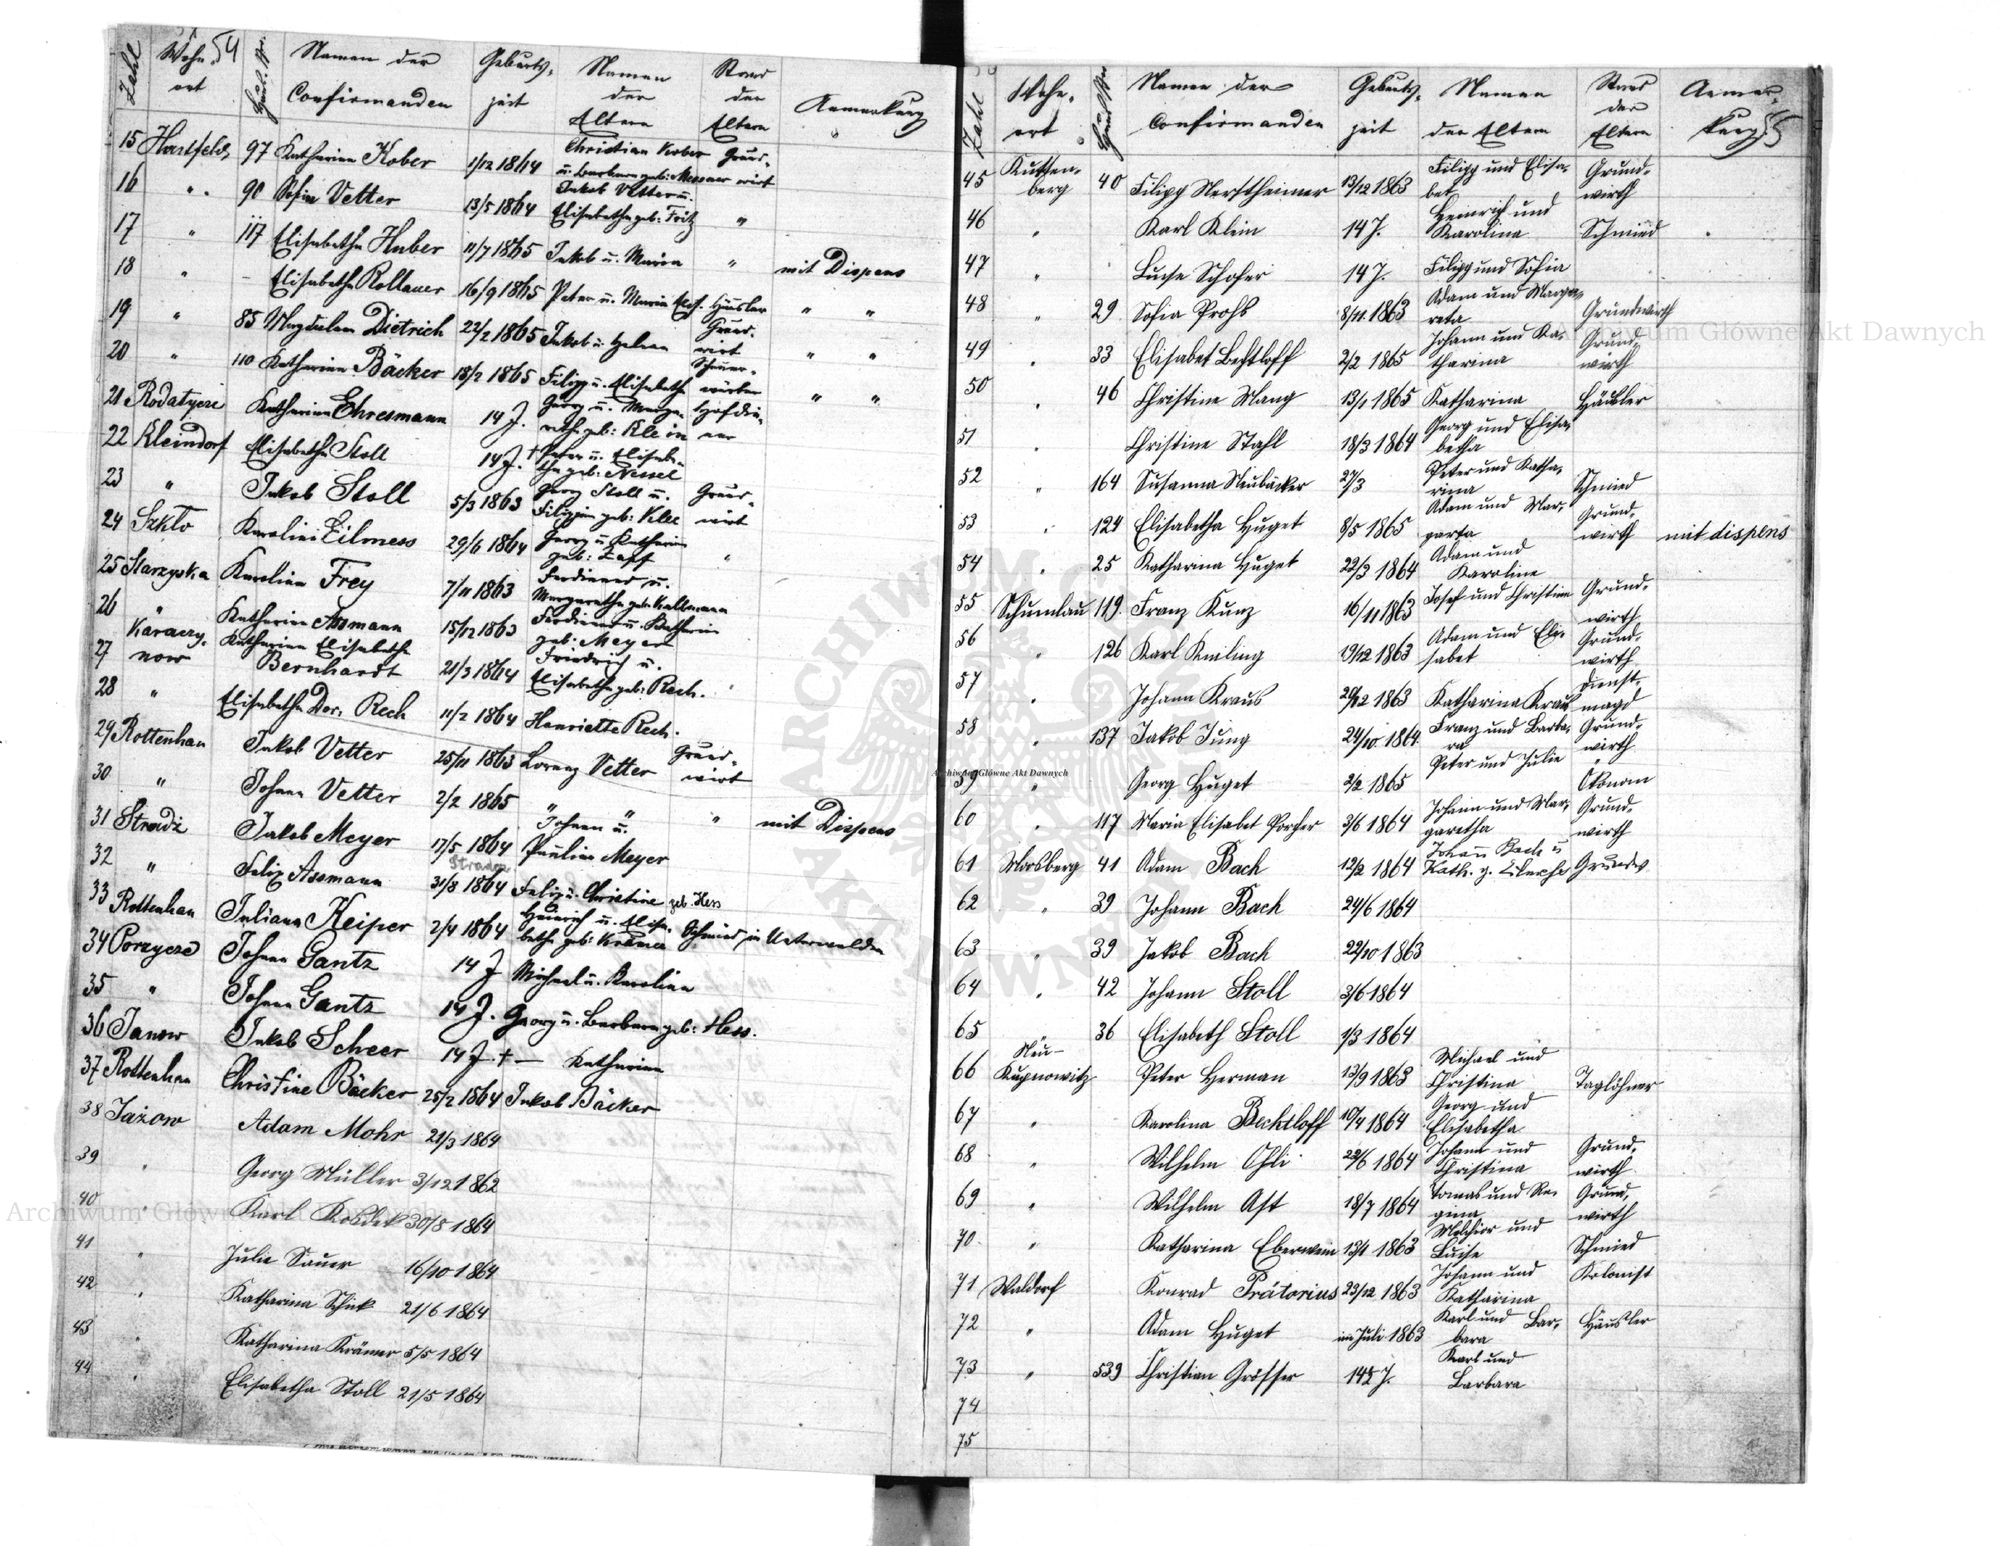 54
Zahl Wohn- ort Haus Nr. Namen der Confirmanden Geburts- zeit Namen der Eltern Stand der Eltern Anmerkung
15 Hartfeld 97 Katharina Kober 1/12 1864 Christian Kober u. Barbara geb: Messner Grund- wirt
16 " " 90 Sofia Vetter 13/5 1864 Jakob Vetter u. Elisabetha geb: Fritz "
17 " 117 Elisabetha Huber 11/7 1865 Jakob u. Maria " mit Dispens
18 " - Elisabetha Rollauer 16/9 1865 Peter u. Maria Häusler " "
19 " 85 Magdalena Dietrich 22/2 1865 Jakob u. Helena Grund- wirt " "
20 " 110 Katharina Bäcker 18/2 1865 Filipp u. Elisabetha " "
21 Rodatycze Katharina Ehresmann 14 J. Georg u. Marga- retha geb: Klein
22 Kleindorf Elisabetha Stoll 14 J. † Peter u. Elisabe- tha geb: Nessel
23 " Jakob Stoll 5/3 1863 Georg Stoll u. Filippina geb: Klee Grund- wirt
24 Szkło Karolina Eilmess 29/6 1864 Georg u. Katharina geb: Zapf "
25 Starzyska Karolina Frey 7/11 1863 Ferdinand u. Margaretha geb: Kallmann
26 " Katharina Assmann 15/12 1863 Ferdinand u. Katharina geb: Meyer
27 Karaczy- now Katharina Elisabetha Bernhardt 21/3 1864 Friedrich u. Elisabetha geb: Rech.
28 " Elisabetha Dor. Rech 11/2 1864 Henriette Rech.
29 Rottenhan Jakob Vetter 25/11 1863 Lorenz Vetter Grund- wirt
30 " Johann Vetter 2/2 1865 " " " mit Dispens
31 Stradz Jakob Meyer 17/5 1864 Johann u. Paulina Meyer
32 " Felix Assmann 31/8 1864 Felix u. Christine geb. Hess
33 Rottenhan Juliana Keiper 2/4 1864 Heinrich u. Elisa- betha geb: Krämer Schmied in Unterwalden
34 Porzycze Johann Gantz 14 J Michael u. Karolina
35 " Johann Gantz 14 J. Georg u. Barbara geb: Hess.
36 Janow Jakob Scheer 14 J. † — Katharina
37 Rottenhan Christine Bäcker 25/2 1864 Jakob Bäcker
38 Jażow Adam Mohr 21/3 1864
39 " Georg Müller 3/12 1862
40 " Karl Kosdek 30/8 1864
41 " Julie Sauer 16/10 1864
42 " Katharina Schick 21/6 1864
43 " Katharina Krämer 5/5 1864
44 " Elisabetha Stoll 21/5 1864
55
Zahl Wohn- ort Haus Nr Namen der Confirmanden Geburts- zeit Namen der Eltern Stand der Eltern Anmer- kung
45 Kutten- berg 40 Filipp Nerstheimer 13/12 1863 Filipp und Elisa- bet Grund- wirth
46 " Karl Klein 14 J. Heinrich und Karolina Schmied
47 " Luise Schofer 14 J. Filipp und Sofia
48 " 29 Sofia Prohs 8/11 1863 Adam und Marga- reta Grundwirth
49 " 33 Elisabet Bechtloff 2/2 1865 Johann und Ka- tharina Grund- wirth
50 " 46 Christine Mang 13/1 1865 Katharina Häusler
51 " Christine Stahl 18/3 1864 Georg und Elisa- betha
52 " 164 Susanna Neubäcker 27/3 Peter und Katha- rina Schmied
53 " 124 Elisabetha Huget 8/5 1865 Adam und Mar- garta Grund- wirth mit dispens
54 " 25 Katharina Huget 22/3 1864 Adam und Karoline
55 Schumlau 119. Franz Kunz 16/11 1863 Josef und Christina Grund- wirth
56 " 126 Karl Keiling 19/12 1863 Adam und Eli- sabet Grund- wirth
57 " Johann Kraus 29/12 1863 Katharina Kraus Dienst- magd
58 " 137 Jakob Jung 24/10 1864 Franz und Barba- ra Grund- wirth
59 " Georg Huget 2/2 1865 Peter und Julie Ökonom
60 " 117 Maria Elisabet Porcher 3/6 1864 Johann und Mar- garetha Grund- wirth
61 Mosberg 41 Adam Bach 12/2 1864 Johann Bach u Kath. g. Grundw.
62 " 39 Johann Bach 24/6 1864
63 " 39 Jakob Bach 22/10 1863
64 " 42 Johann Stoll 3/6 1864
65 36 Elisabeth Stoll 1/3 1864
66 Neu- Kupnowitz Peter Herman 13/9 1863 Michael und Christina Taglöhner
67 " Karolina Bechtloff 10/4 1864 Georg und Elisabetha
68 " Wilhelm Ohli 22/6 1864 Johann und Christina Grund- wirth
69 " Wilhelm Ast 18/7 1864 Tomas und Re- gina Grund- wirth
70 " Katharina Eberwein 13/1 1863 Melchior und Luise Schmied
71 Waldorf Konrad Prätorius 23/12 1863 Johann und Katharina Kolonist
72 " Adam Huget im Juli 1863 Karl und Bar- bara Häusler
73 " 539 Christian Grösser 14½ J. Karl und Barbara
74
75
Archiwum Główne Akt Dawnych
Archiwum Główne Akt Dawnych
Archiwum Główne Akt Dawnych
ARCHIWUM GŁÓWNE AKT DAWNYCH